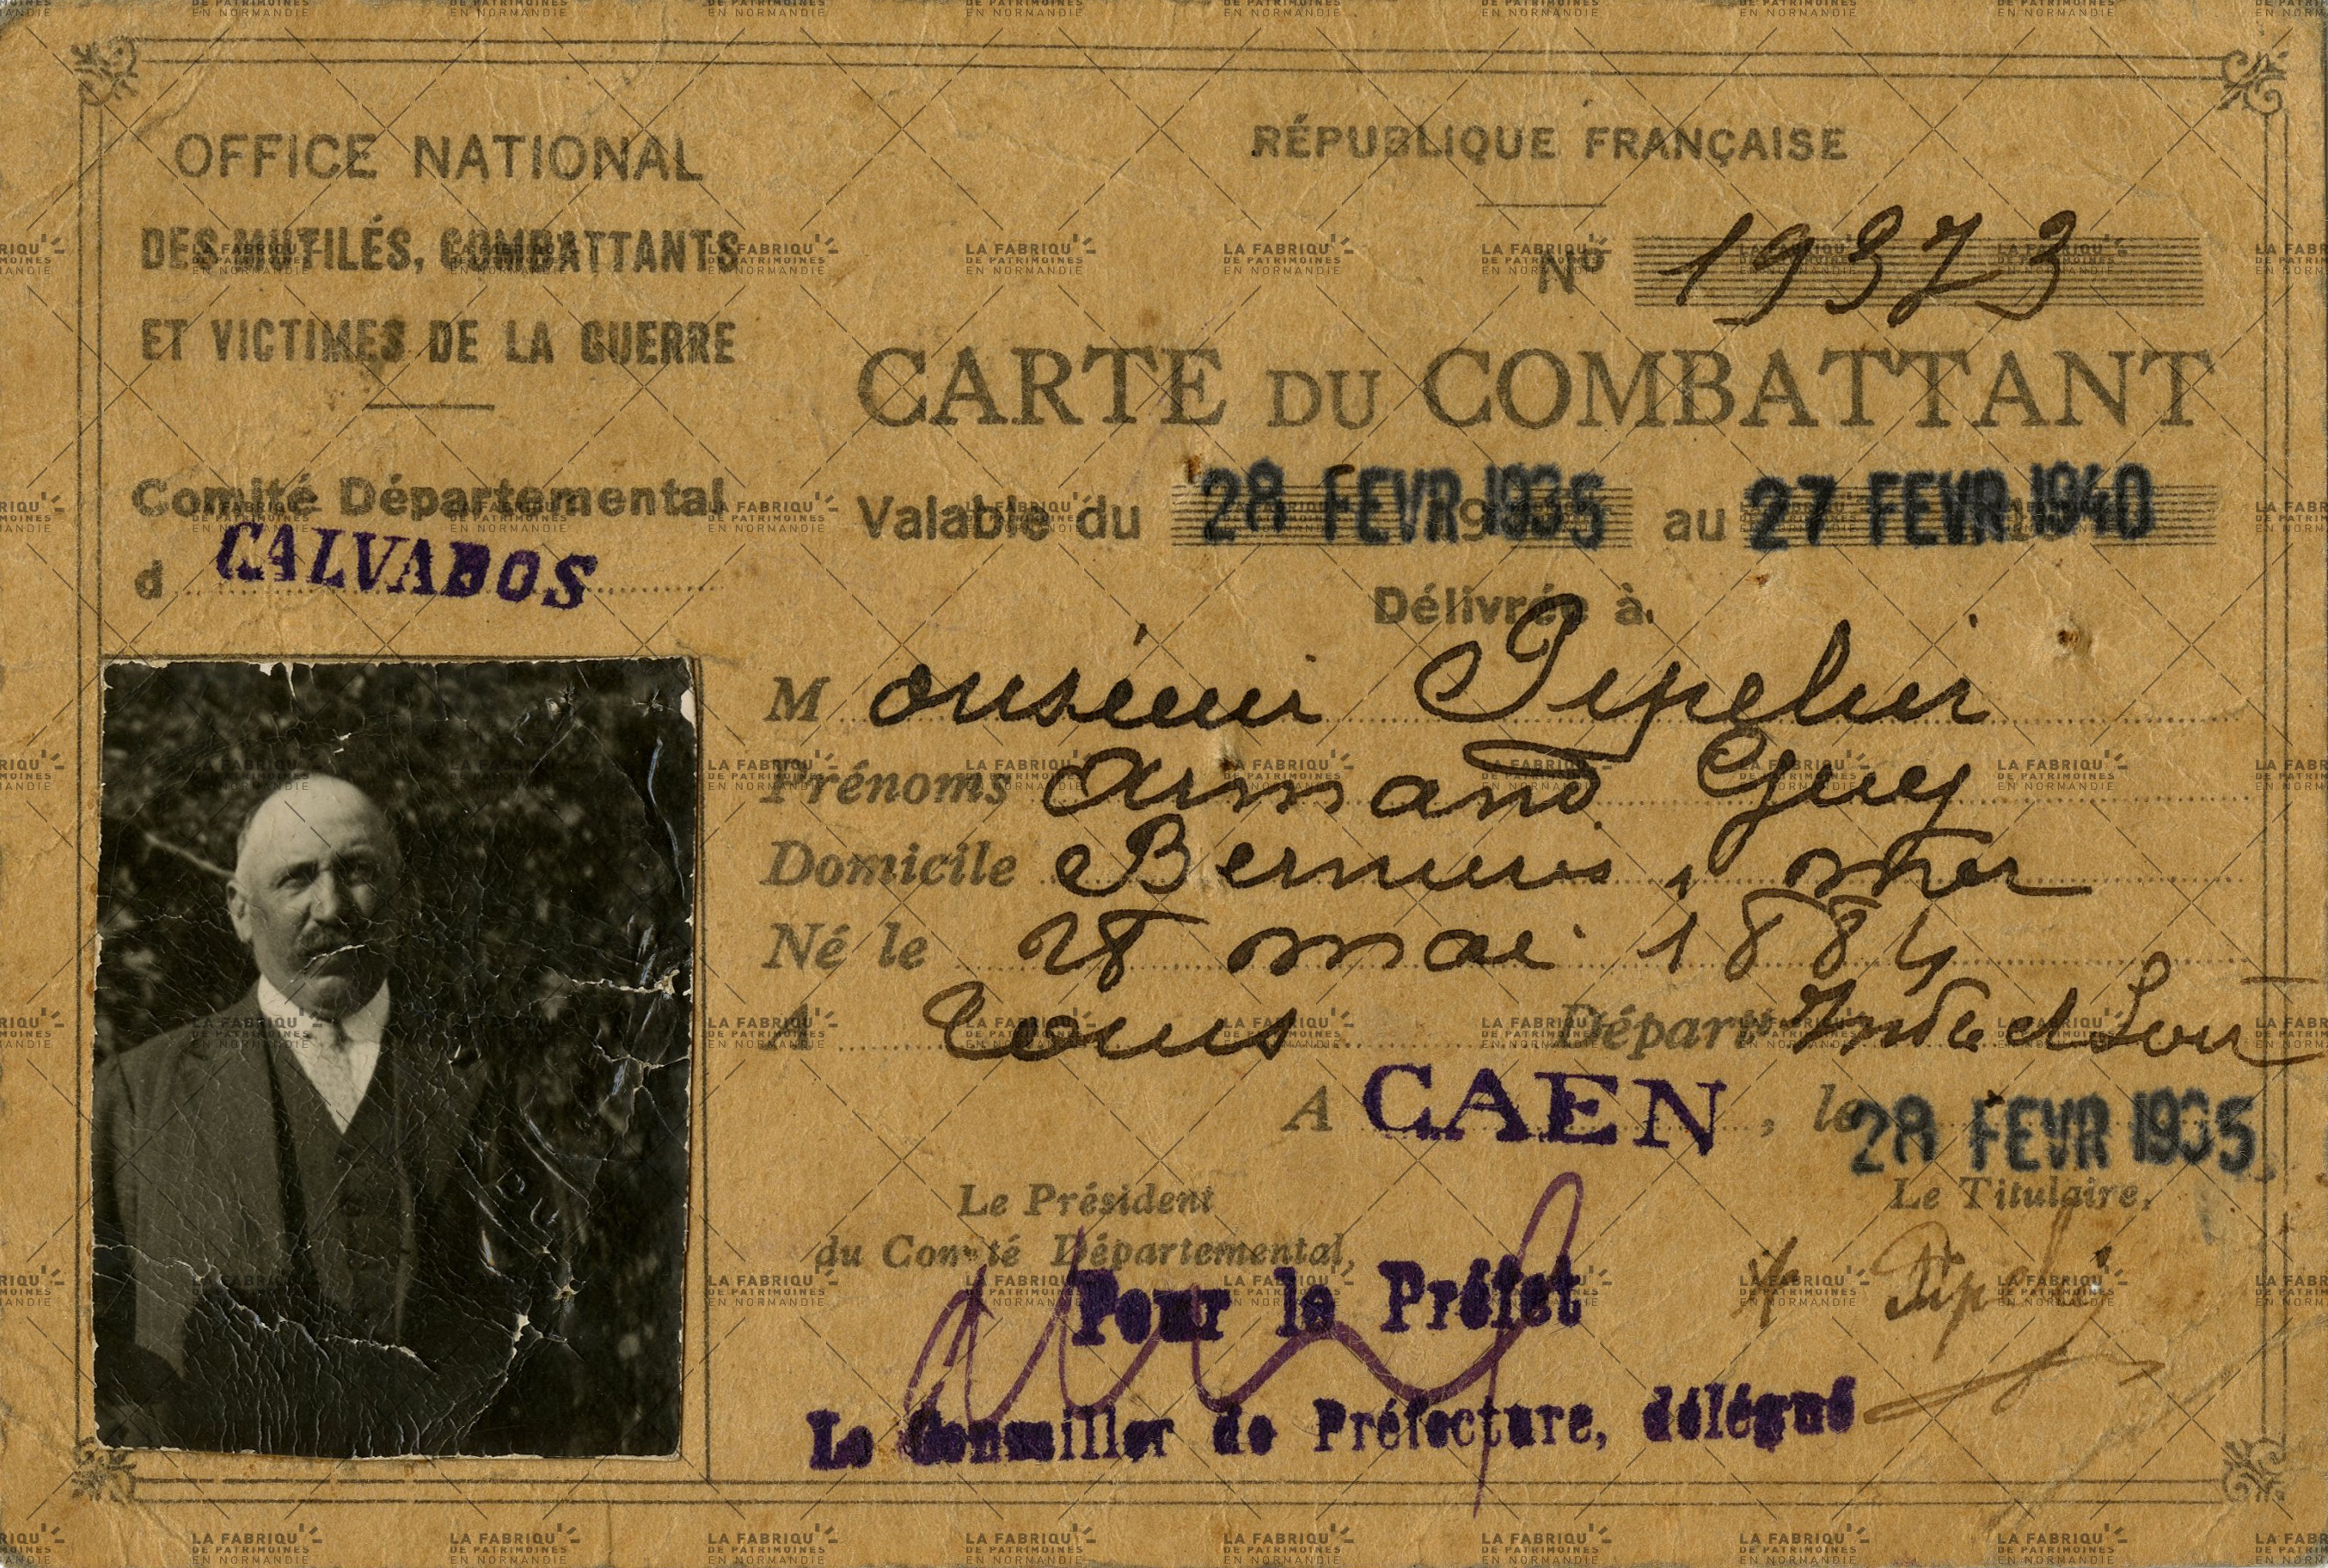 OFFICE NATIONAL
DES MUTILÉS, COMBATTANTS
ET VICTIMES DE LA GUERRE
Comité Départemental
d CALVADOS
RÉPUBLIQUE FRANÇAISE
Nº 19373
CARTE DU COMBATTANT
Valable du 28 FEVR 1935 au 27 FEVR 1940
Délivrée à
Monsieur Pipelier
Prénoms Armand Guy
Domicile Bernieres s mer
Né le 28 mai 1884
A Tours Départt Indre et Loire
A CAEN, le 28 FEVR 1935
Le Président
du Comité Départemental,
Le Titulaire,
Pour le Préfet
Le Conseiller de Préfecture, délégué
LA FABRIQU'
DE PATRIMOINES
EN NORMANDIE